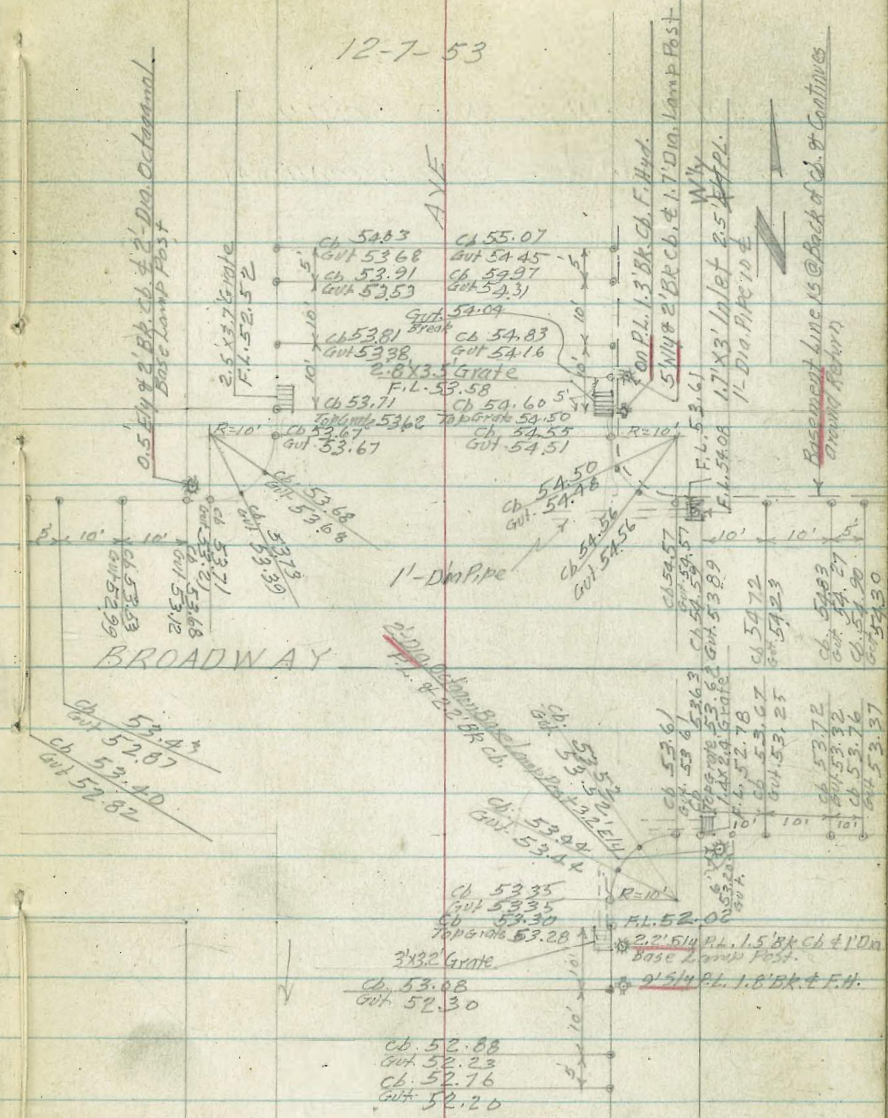 12-7-53
AVE
0.5' Ely & 2' Bk. Cb. & 2'-Dia. Octagonal
Base Lamp Post
2.5'X3.7' Grate
F.L. 52.52
Cb 54.03
Gut 53.68
Cb 53.91
Gut 53.53
Cb 55.07
Gut 54.45
Cb 54.97
Gut 54.31
5'
5'
Gut. 54.04
Break
10'
10'
Cb 53.81
Gut 53.38
Cb 54.83
Gut 54.16
2.8'X3.5' Grate
F.L. 53.58
10'
10'
5'
Cb 53.71
Top Grate 53.62
Cb 54.60
Top Grate 54.50
R=10'
Cb 53.67
Gut 53.67
Cb 54.55
Gut 54.51
R=10'
on P.L. 1.3' Bk. Cb. F. Hyd.
5' Nly & 2' Bk Cb. & 1.7' Dia. Lamp Post
W'ly
1.7'X3' Inlet 2.5' P.L.
F.L. 53.61
1'-Dia. Pipe
F.L. 54.08
Basement Line is @ Back of Cb. & Continues
Around Return
Cb. 53.68
Gut 53.68
53.73
Gut 53.39
Cb 54.50
Gut. 54.48
Cb 54.56
Gut. 54.56
1'-Dia Pipe
5'
10'
10'
Cb 53.53
Gut 52.99
Cb 53.68
Gut 53.12
Cb 53.71
Gut 53.21
10'
10'
5'
Cb 54.57
Gut 54.57
Cb 54.59
Gut 53.89
Cb 54.72
Gut 54.23
Cb. 54.83
Gut. 54.27
Cb. 54.90
Gut 54.30
BROADWAY
Cb 53.43
Gut 52.87
Cb 53.40
Gut 52.82
2'-Dia. Octagon Base Lamp Post 3.2' Ely
P.L. & 2.2' Bk Cb.
Cb. 53.44
Gut. 53.44
Cb 53.61
Gut. 53.61
Cb 53.63
Top Grate 53.62
1.4X2.9 Grate
F.L. 52.78
Cb 53.67
Gut. 53.25
Cb 53.72
Gut. 53.32
Cb 53.76
Gut 53.37
10'
10'
10'
53.20
Gut.
R=10'
Cb 53.35
Gut 53.35
Cb 53.30
Top Grate 53.28
F.L. 52.02
2.2' Sly P.L. 1.5' Bk Cb & 1' Dia
Base Lamp Post.
3'X3.2' Grate
10'
9' Sly P.L. 1.8' Bk. & F.H.
Cb. 53.08
Gut. 52.30
10'
Cb. 52.88
Gut 52.23
5'
Cb. 52.76
Gut. 52.20